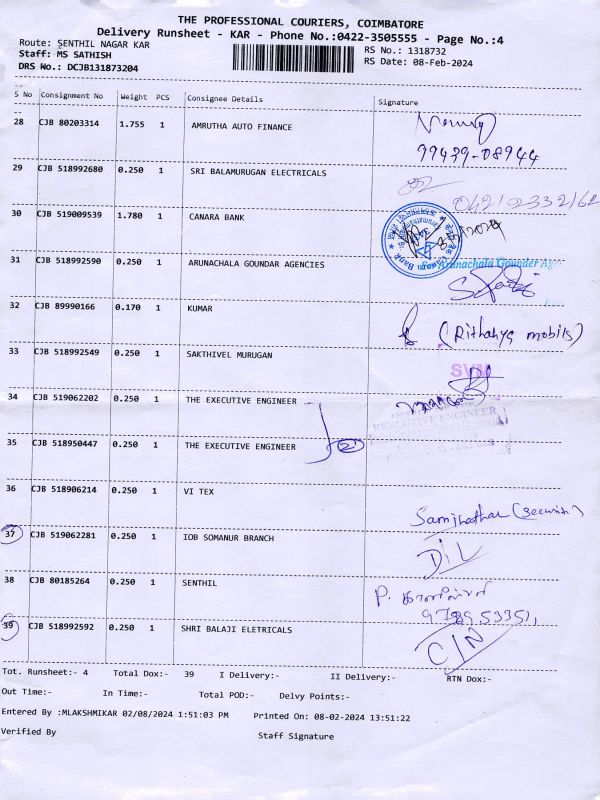 THE PROFESSIONAL COURIERS, COIMBATORE
Delivery Runsheet - KAR - Phone No.:0422-3505555 - Page No.:4
Route: SENTHIL NAGAR KAR RS No.: 1318732
Staff: MS SATHISH RS Date: 08-Feb-2024
DRS No.: DCJB131873204
S No Consignment No Weight PCS Consignee Details Signature
28 CJB 80203314 1.755 1 AMRUTHA AUTO FINANCE
99439-08944
29 CJB 518992680 0.250 1 SRI BALAMURUGAN ELECTRICALS
30 CJB 519009539 1.780 1 CANARA BANK
Canara Bank
31 CJB 518992590 0.250 1 ARUNACHALA GOUNDAR AGENCIES
Arunachala Gounder
32 CJB 89990166 0.170 1 KUMAR
33 CJB 518992549 0.250 1 SAKTHIVEL MURUGAN
SVM
34 CJB 519062202 0.250 1 THE EXECUTIVE ENGINEER
EXECUTIVE ENGINEER
35 CJB 518950447 0.250 1 THE EXECUTIVE ENGINEER 2
36 CJB 518906214 0.250 1 VI TEX
37 CJB 519062281 0.250 1 IOB SOMANUR BRANCH D/L
38 CJB 80185264 1 SENTHIL
39 CJB 518992592 0.250 1 SHRI BALAJI ELETRICALS C/N
Tot. Runsheet:- 4 Total Dox:- 39 I Delivery:- II Delivery:- RTN Dox:-
Out Time:- In Time:- Total POD:- Delvy Points:-
Entered By :MLAKSHMIKAR 02/08/2024 1:51:03 PM Printed On: 08-02-2024 13:51:22
Verified By Staff Signature